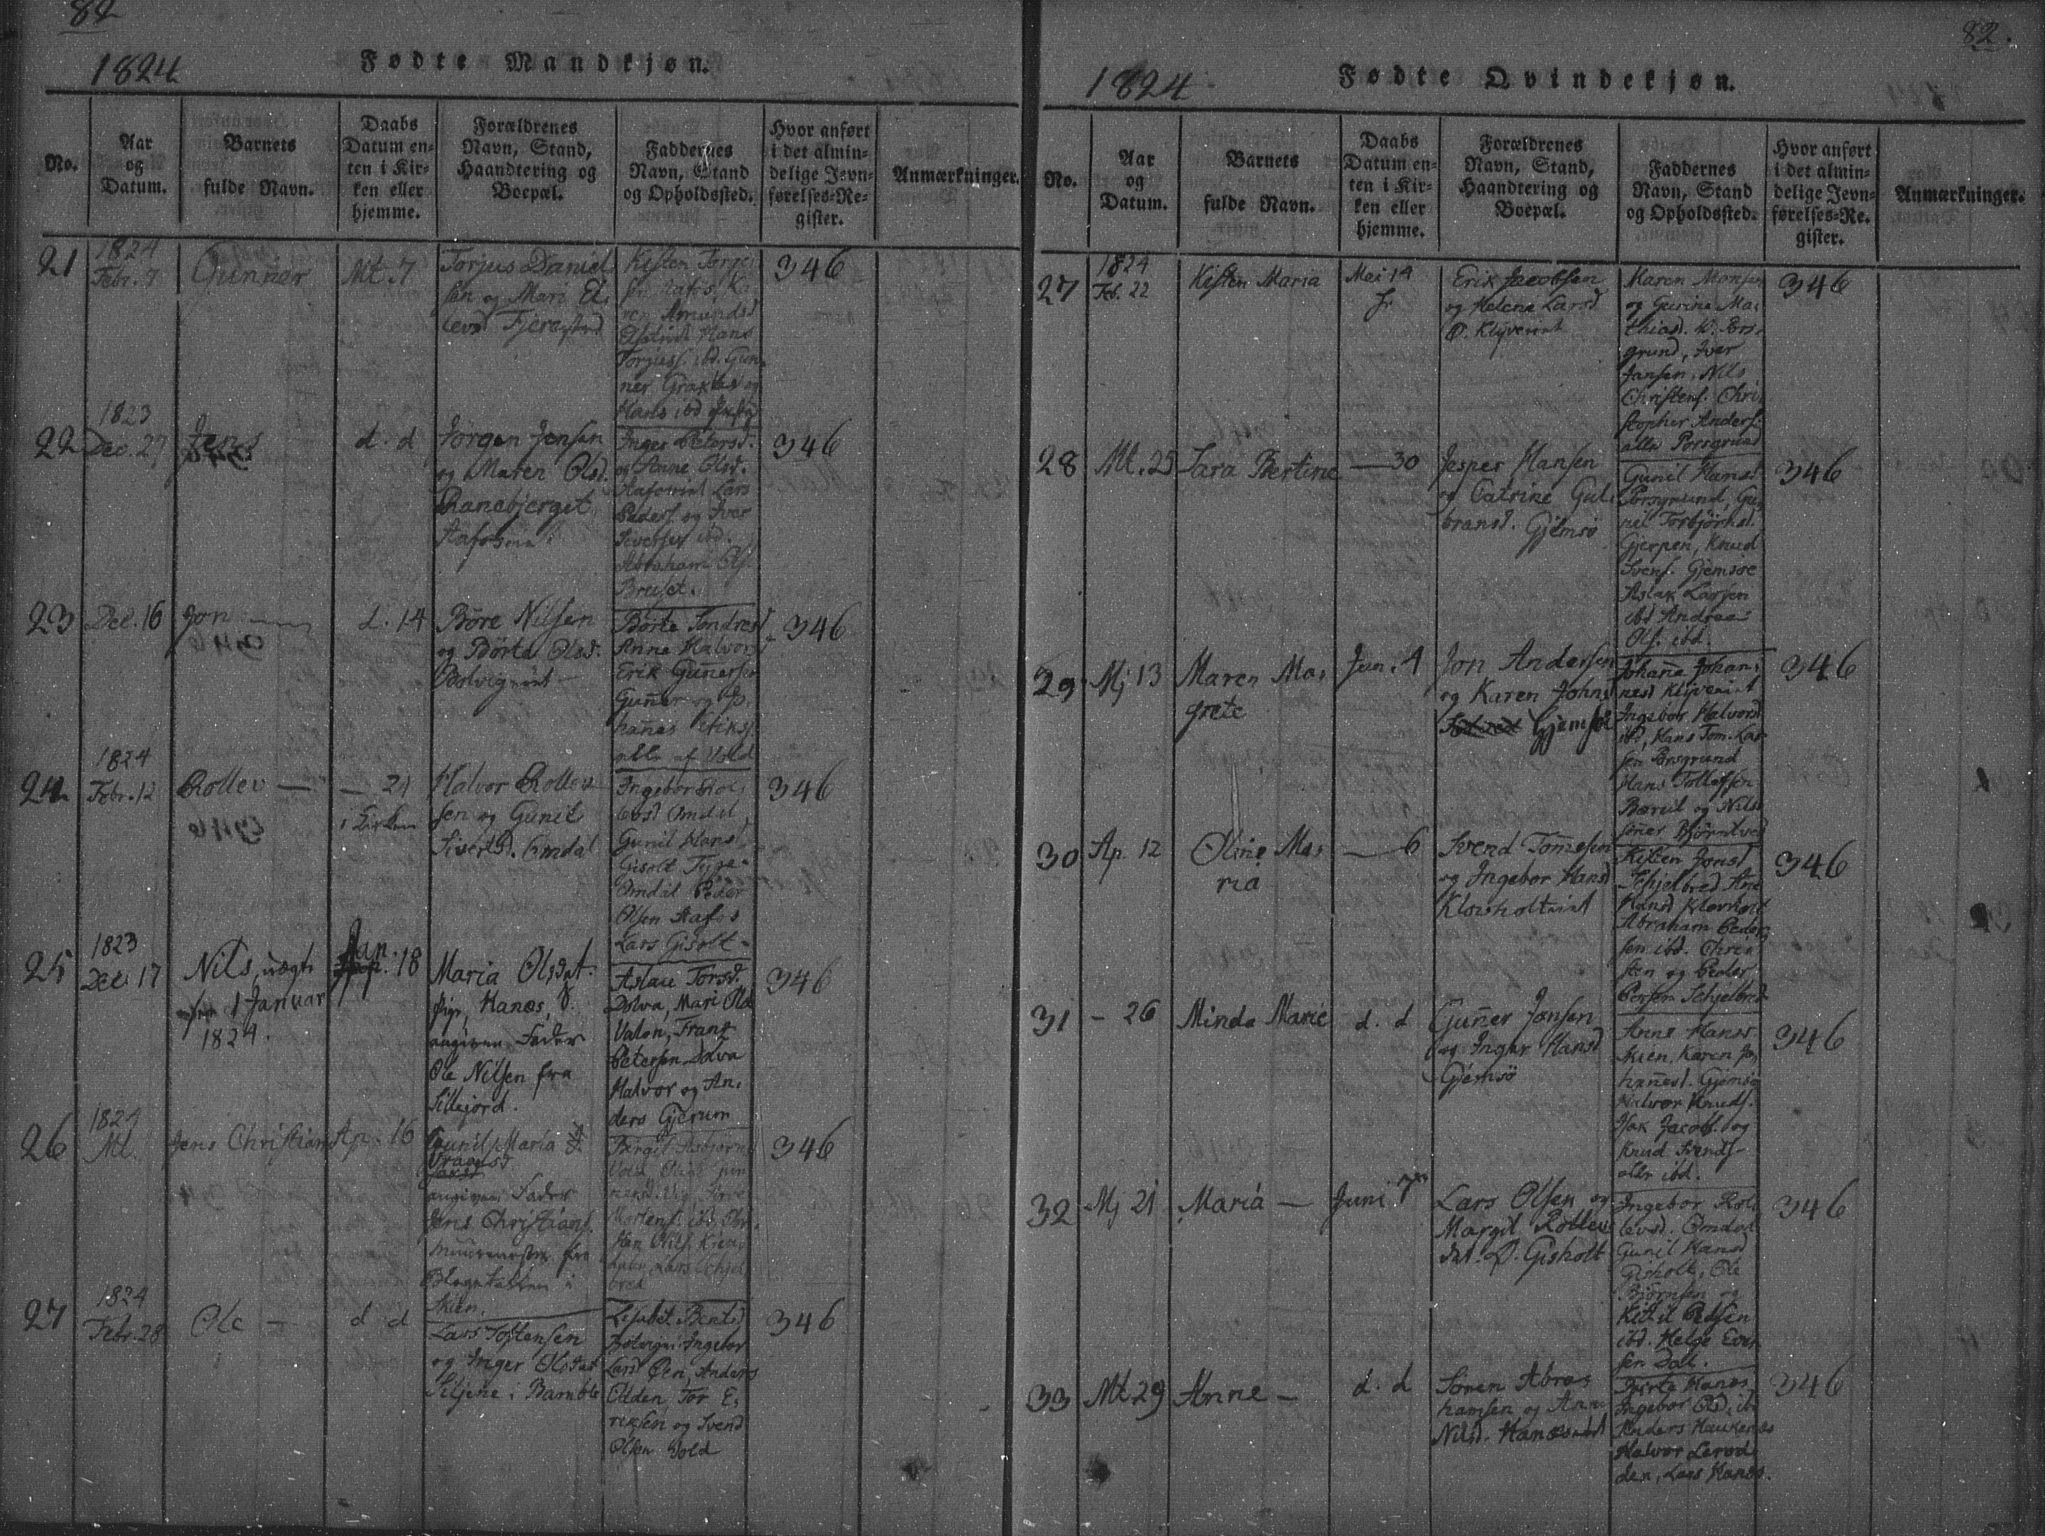 82
1824
Fødte Mandkjøn.
No.
Aar
og
Datum.
Barnets
fulde Navn.
Daabs
Datum en-
ten i Kir-
ken eller
hjemme.
Forældrenes
Navn, Stand,
Haandtering og
Boepæl.
Faddernes
Navn, Stand
og Opholdssted.
Hvor anført
i det almin-
delige Jevn-
førelses-Re-
gister.
Anmærkninger.
21
1824
Febr. 7
Gunnar
Mt. 7
Torjus Daniel
sen og Mari El
levsd
Kisten Torge
Amunds
Hans
Torjuss. ibd. Gun
ner
Hans ibd
346
22
1823
Dec. 27
Jens
d. d
Jørgen Jensen
og Maren Olsd.
Ranebjerget
Inger Petersd.
og Anne Olsd.
Lars
Peders. og Iver
Iversen ibd.
Abraham Ols.
Breset.
346
23
Dec. 16
Jon
d. 14
Børe Nilsen
og Børta Olsd.
Bolvigeint
Børte Tondres
Anne Halvor
Erik Gunnersen
Gunner og Jo
hannes Eriks
alle af Vold
346
24
1824
Febr. 12
Rollev
21
i Kirken
Halvor Rollev
sen og Gunil
Sivertsd. Omdal
Ingebor Rol
levsd Omdal
Gunil Hans
Gisolt
Omdal Peder
Olsen Aafos
Lars Gisolt
346
25
1823
Dec. 17
Nils, uægte
1 Januar
1824.
Jan. 18
Maria Olsdat.
Pige, Hanæs, D.
angiven Fader
Ole Nilsen fra
Sillejord.
Aslau Torsd.
Dolva, Mari Ols
Valen, Frans
Petersen Dolva
Halvor og An
ders Gjerum
346
26
1824
Mt.
Jens Christian
Ap. 16
Gunil Maria
angiven Fader
Jens Christians.
Muurmester fra
Blegebakken i
Skien.
Birgit Asbjørns
Mortens. ibd.
Lars Schjel
bred
346
27
1824
Febr. 28
Ole
d d
Lars Tostensen
og Inger Olsdat
Siljene i Bamble
Lisabet Bents
Bolvigei Ingebor
Larsd Øen, Anders
Olden, Tor E
riksen og Svend
Olsen Vold
346
82.
1824
Fødte Qvindekjøn.
No.
Aar
og
Datum.
Barnets
fulde Navn.
Daabs
Datum en-
ten i Kir-
ken eller
hjemme.
Forældrenes
Navn, Stand,
Haandtering og
Boepæl.
Faddernes
Navn, Stand
og Opholdssted.
Hvor anført
i det almin-
delige Jevn-
førelses-Re-
gister.
Anmærkninger.
27
1824
Feb. 22
Kisten Maria
Mai 14
Erik Jacobsen
og Helene Larsd
Ø. Klyveeint
Maren Monsen
og Gurine Ma
thiasd. V. Pors
grund, Iver
Jansen, Nils
Christens. Chri
stopher Anders.
alle Porsgrund
346
28
Mt. 25
Sara Bertine
30
Jesper Hansen
og Catrine Gul
bransd. Gjemsø
Gunil Hansd
Porsgrund, Gu
nil Torbjørnsd.
Gjerpen, Knud
Svens. Gjemsøe
Aslak Larsen
ibd Andreas
Ols. ibd.
346
29
Mj 13
Maren Mar
grete
Jun. 4
Jon Andersen
og Karen Johns
Gjemsø
Johane Johan
nesd Klyveeint
Ingebor Halvors
ibd, Hans Tom. Lar
sen Porsgrund
Hans Tollefsen
Barvil og Nils
Bjørntved
346
30
Ap. 12
Oline Ma
ria
6
Svend Tomesen
og Ingebor Hansd
Klovholteint
Kisten Jonsd
Schjelbred Ane
Hansd Klovholt
Abraham Peder
sen ibd. Chris
ten og Peder
Persen Schjelbred
346
31
26
Minda Marie
d. d
Gunner Jonsen
og Inger Hansd
Gjemsø
Anne Hansd
Skien, Karen Jo
hannesd. Gjemsø
Halvor Knuds.
Isak Jacobs. og
Knud Svends
alle ibd.
346
32
Mj 21
Maria
Juni 7
Lars Olsen og
Margit Rollev
dat. Ø. Gisholt
Ingebor Rol
levsd. Omdal
Gunil Hansd
Gisholt, Ole
Bjørnsen og
Ketil Pedsen
ibd. Helge Even
sen Dal.
346
33
Mt. 29
Anne
d. d
Søren Abra
hamsen og Ann
Nilsd. Hanæseint
Birte Hanæs
Ingebor Ols. ib
Anders Haukenæs
Halvor Lerød
den, Lars Hanæs.
346